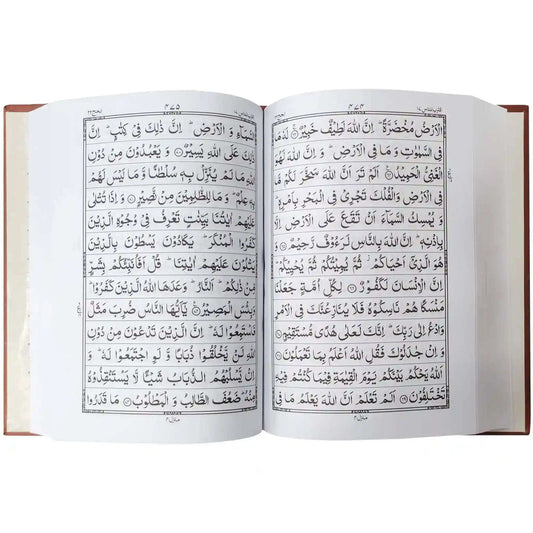 ۴۷۴
الْاَرْضُ مُخْضَرَّةً ؕ اِنَّ اللّٰهَ لَطِیْفٌ خَبِیْرٌ ۚ۝۶۳ لَهٗ مَا
فِی السَّمٰوٰتِ وَ مَا فِی الْاَرْضِ ؕ وَ اِنَّ اللّٰهَ لَهُوَ
الْغَنِیُّ الْحَمِیْدُ ۝۶۴ اَلَمْ تَرَ اَنَّ اللّٰهَ سَخَّرَ لَكُمْ مَّا
فِی الْاَرْضِ وَ الْفُلْكَ تَجْرِیْ فِی الْبَحْرِ بِاَمْرِهٖ ؕ
وَ یُمْسِكُ السَّمَآءَ اَنْ تَقَعَ عَلَی الْاَرْضِ اِلَّا
بِاِذْنِهٖ ؕ اِنَّ اللّٰهَ بِالنَّاسِ لَرَءُوْفٌ رَّحِیْمٌ ۝۶۵ وَ
هُوَ الَّذِیْۤ اَحْیَاكُمْ ؗ ثُمَّ یُمِیْتُكُمْ ثُمَّ یُحْیِیْكُمْ ؕ
اِنَّ الْاِنْسَانَ لَكَفُوْرٌ ۝۶۶ لِكُلِّ اُمَّةٍ جَعَلْنَا
مَنْسَكًا هُمْ نَاسِكُوْهُ فَلَا یُنَازِعُنَّكَ فِی الْاَمْرِ
وَ ادْعُ اِلٰی رَبِّكَ ؕ اِنَّكَ لَعَلٰی هُدًی مُّسْتَقِیْمٍ ۝۶۷
وَ اِنْ جٰدَلُوْكَ فَقُلِ اللّٰهُ اَعْلَمُ بِمَا تَعْمَلُوْنَ ۝۶۸
اَللّٰهُ یَحْكُمُ بَیْنَكُمْ یَوْمَ الْقِیٰمَةِ فِیْمَا كُنْتُمْ فِیْهِ
تَخْتَلِفُوْنَ ۝۶۹ اَلَمْ تَعْلَمْ اَنَّ اللّٰهَ یَعْلَمُ مَا فِی
منزل ۴
۴۷۵
السَّمَآءِ وَ الْاَرْضِ ؕ اِنَّ ذٰلِكَ فِیْ كِتٰبٍ ؕ اِنَّ
ذٰلِكَ عَلَی اللّٰهِ یَسِیْرٌ ۝۷۰ وَ یَعْبُدُوْنَ مِنْ دُوْنِ
اللّٰهِ مَا لَمْ یُنَزِّلْ بِهٖ سُلْطٰنًا وَّ مَا لَیْسَ لَهُمْ
بِهٖ عِلْمٌ ؕ وَ مَا لِلظّٰلِمِیْنَ مِنْ نَّصِیْرٍ ۝۷۱ وَ اِذَا تُتْلٰی
عَلَیْهِمْ اٰیٰتُنَا بَیِّنٰتٍ تَعْرِفُ فِیْ وُجُوْهِ الَّذِیْنَ
كَفَرُوا الْمُنْكَرَ ؕ یَكَادُوْنَ یَسْطُوْنَ بِالَّذِیْنَ
یَتْلُوْنَ عَلَیْهِمْ اٰیٰتِنَا ؕ قُلْ اَفَاُنَبِّئُكُمْ بِشَرٍّ
مِّنْ ذٰلِكُمْ ؕ اَلنَّارُ ؕ وَعَدَهَا اللّٰهُ الَّذِیْنَ كَفَرُوْا ؕ
وَ بِئْسَ الْمَصِیْرُ ۝۷۲ یٰۤاَیُّهَا النَّاسُ ضُرِبَ مَثَلٌ
فَاسْتَمِعُوْا لَهٗ ؕ اِنَّ الَّذِیْنَ تَدْعُوْنَ مِنْ دُوْنِ
اللّٰهِ لَنْ یَّخْلُقُوْا ذُبَابًا وَّ لَوِ اجْتَمَعُوْا لَهٗ ؕ وَ
اِنْ یَّسْلُبْهُمُ الذُّبَابُ شَیْـًٔا لَّا یَسْتَنْقِذُوْهُ
مِنْهُ ؕ ضَعُفَ الطَّالِبُ وَ الْمَطْلُوْبُ ۝۷۳ مَا قَدَرُوا
منزل ۴